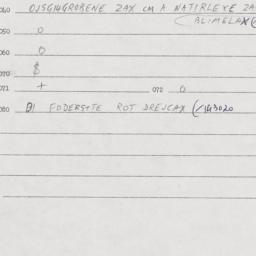 040 OJSGHGROBENE ZAX CM A NATIRLEXE ZA
(BLIMELAX(
050 0
060 0
070 $
071 + 072 0
080 A1 FODERS+TE ROT DREJCAX (/143020